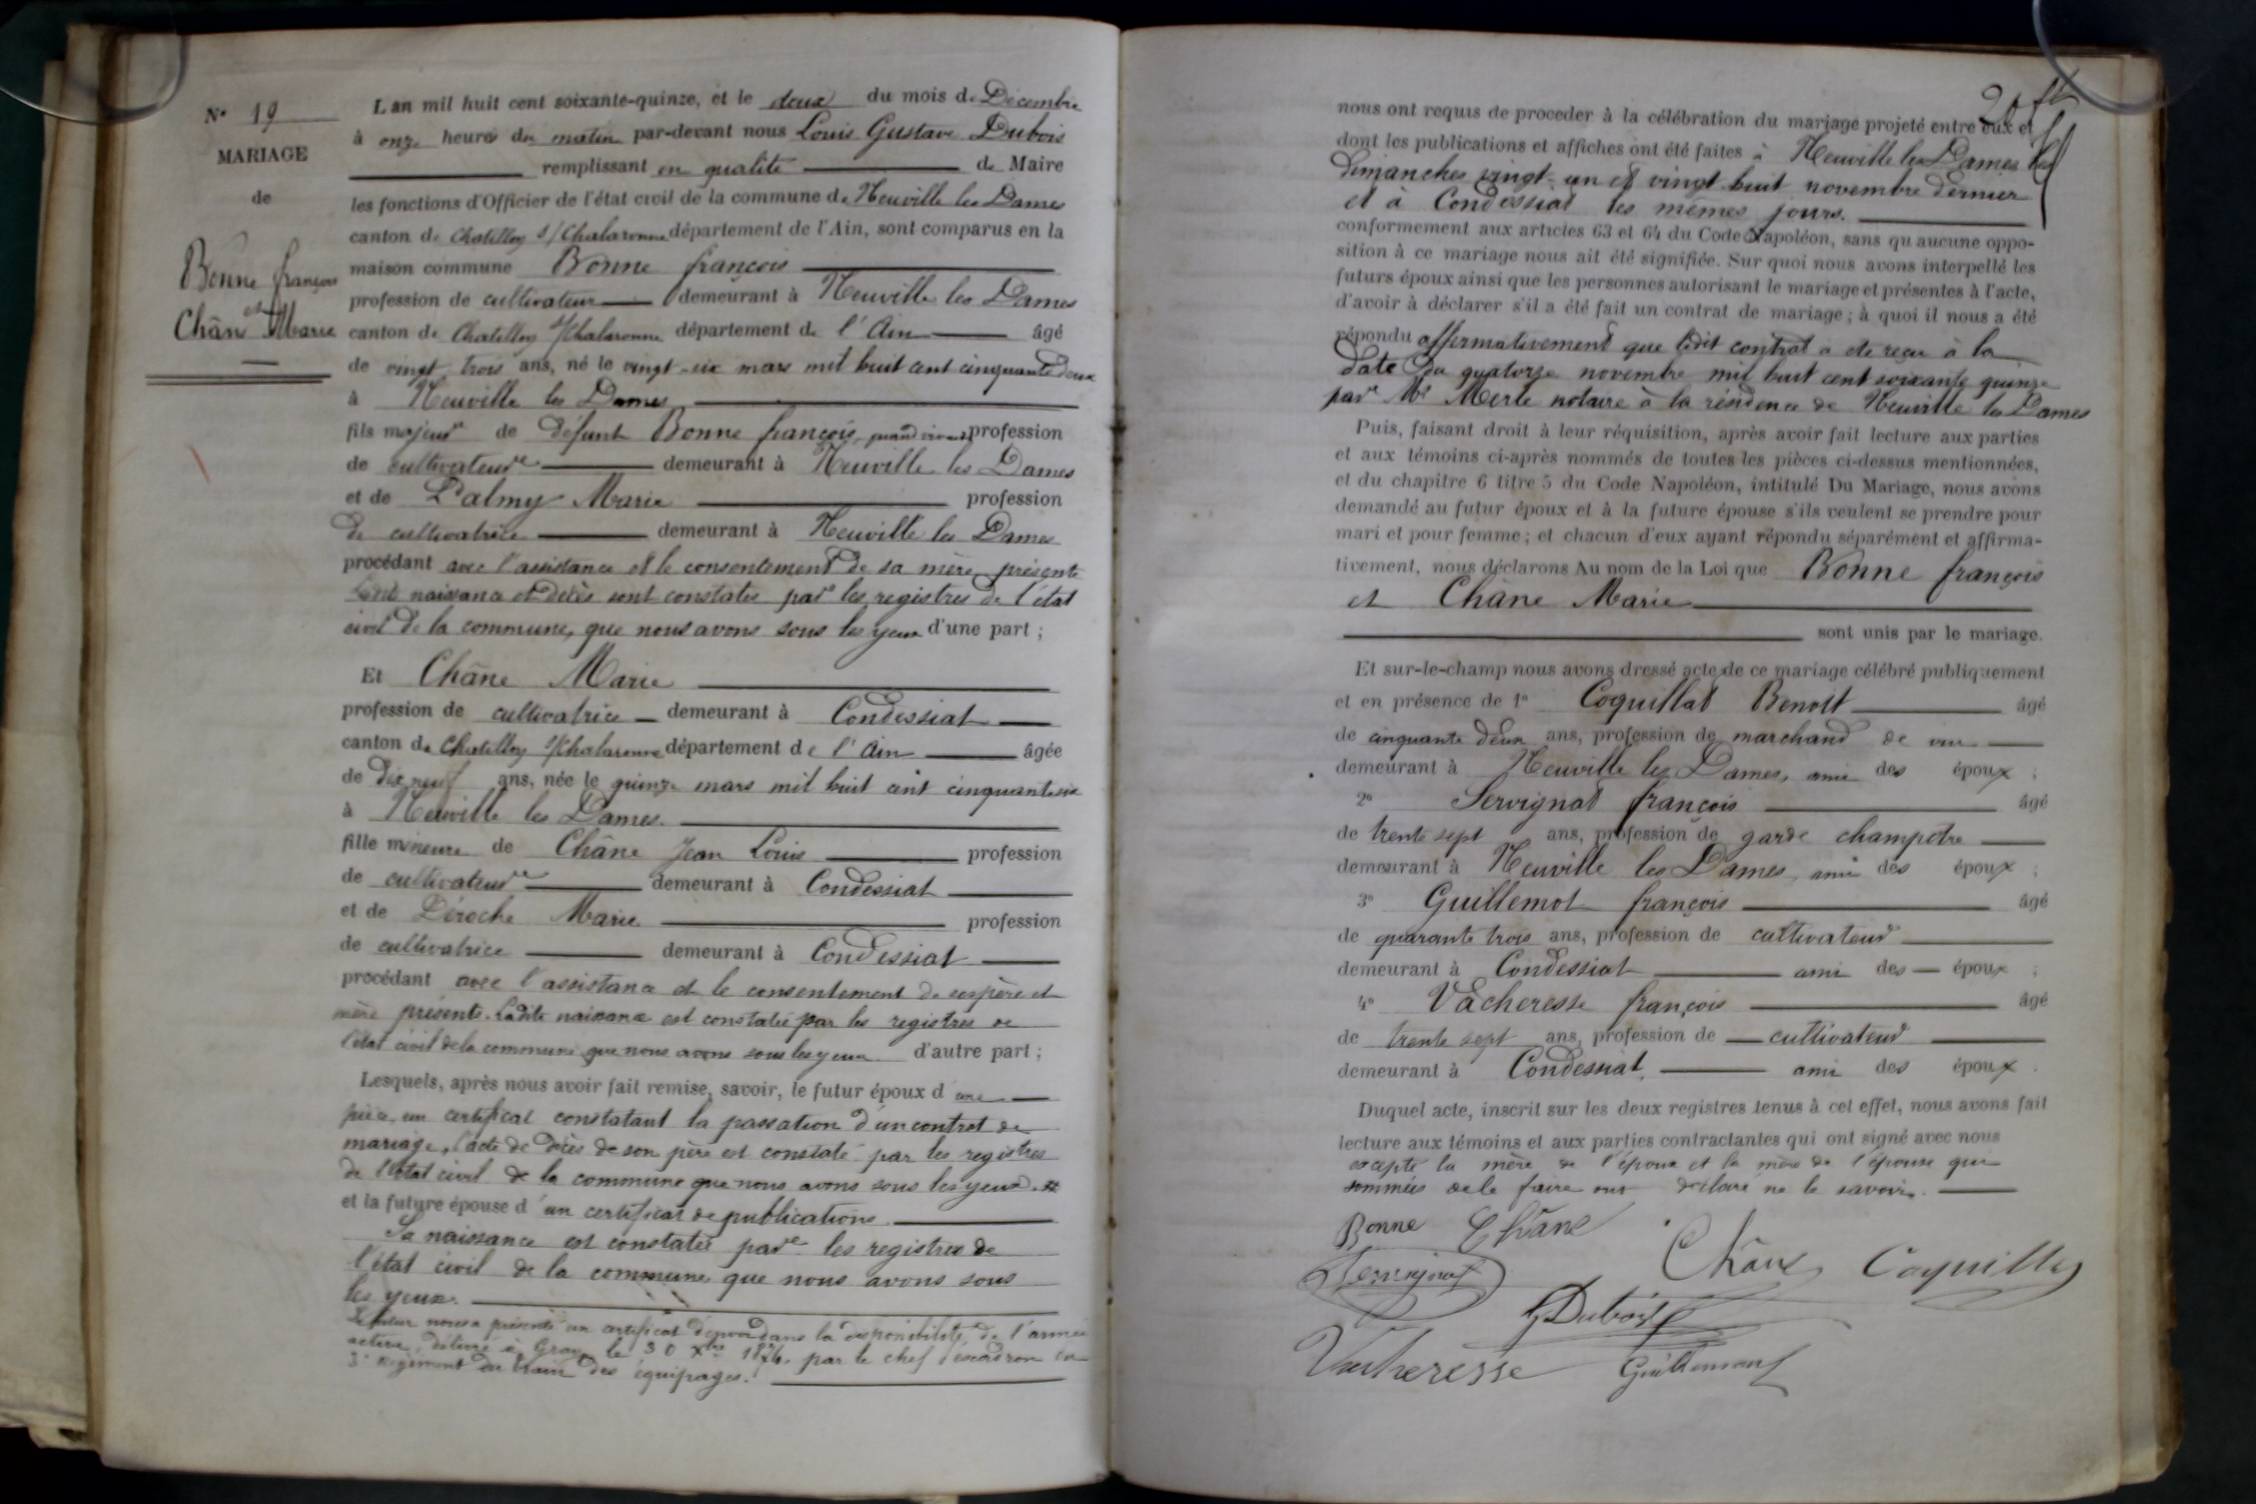 N° 19
MARIAGE
de
Bonne françois
et
Chân Marie
L'an mil huit cent soixante-quinze, et le deux du mois de Décembre
à onze heures du matin par-devant nous Louis Gustave Dubois
remplissant en qualité de Maire
les fonctions d'Officier de l'état civil de la commune de Neuville les Dames
canton de Chatillon s/Chalaronne département de l'Ain, sont comparus en la
maison commune Bonne françois
profession de cultivateur demeurant à Neuville les Dames
canton de Chatillon s/Chalaronne département de l'Ain âgé
de vingt trois ans, né le vingt-six mars mil huit cent cinquante deux
à Neuville les Dames
fils majeur de défunt Bonne françois, quand vivait profession
de cultivateur demeurant à Neuville les Dames
et de Palmy Marie profession
de cultivatrice demeurant à Neuville les Dames
procédant avec l'assistance et le consentement de sa mère présente
naissance et décès sont constatés par les registres de l'état
civil de la commune, que nous avons sous les yeux d'une part ;
Et Châne Marie
profession de cultivatrice demeurant à Condessiat
canton de Chatillon s/Chalaronne département de l'Ain âgée
de dix neuf ans, née le quinze mars mil huit cent cinquante six
à Neuville les Dames.
fille mineure de Châne Jean Louis profession
de cultivateur demeurant à Condessiat
et de Déroche Marie profession
de cultivatrice demeurant à Condessiat
procédant avec l'assistance et le consentement de ses père et
mère présents. Ladite naissance est constatée par les registres de
l'état civil de la commune que nous avons sous les yeux d'autre part ;
Lesquels, après nous avoir fait remise, savoir, le futur époux d'une
pièce, un certificat constatant la passation d'un contrat de
mariage, l'acte de décès de son père est constaté par les registres
de l'état civil de la commune que nous avons sous les yeux.
et la future épouse d'un certificat de publications.
Sa naissance est constatée par les registres de
l'état civil de la commune que nous avons sous
les yeux.
Le futur nous a présenté un certificat d'envoi dans la disponibilité de l'armée
active, délivré à Gray le 30 Xbre 1874, par le chef d'escadron du
3e Régiment du train des équipages.
nous ont requis de proceder à la célébration du mariage projeté entre eux et
dont les publications et affiches ont été faites à Neuville les Dames les
dimanches vingt-un et vingt huit novembre dernier
et à Condessiat les mêmes jours.
conformement aux articles 63 et 64 du Code Napoléon, sans qu'aucune oppo-
sition à ce mariage nous ait été signifiée. Sur quoi nous avons interpellé les
futurs époux ainsi que les personnes autorisant le mariage et présentes à l'acte,
d'avoir à déclarer s'il a été fait un contrat de mariage ; à quoi il nous a été
répondu affirmativement que ledit contrat a été reçu à la
date du quatorze novembre mil huit cent soixante quinze
par Me Merle notaire à la résidence de Neuville les Dames
Puis, faisant droit à leur réquisition, après avoir fait lecture aux parties
et aux témoins ci-après nommés de toutes les pièces ci-dessus mentionnées,
et du chapitre 6 titre 5 du Code Napoléon, intitulé Du Mariage, nous avons
demandé au futur époux et à la future épouse s'ils veulent se prendre pour
mari et pour femme ; et chacun d'eux ayant répondu séparément et affirma-
tivement, nous déclarons Au nom de la Loi que Bonne françois
et Châne Marie
sont unis par le mariage.
Et sur-le-champ nous avons dressé acte de ce mariage célébré publiquement
et en présence de 1° Coquillat Benoît âgé
de cinquante deux ans, profession de marchand de vin
demeurant à Neuville les Dames, ami des époux ;
2° Servignat françois âgé
de trente sept ans, profession de garde champêtre
demeurant à Neuville les Dames, ami des époux ;
3° Guillemot françois âgé
de quarante trois ans, profession de cultivateur
demeurant à Condessiat ami des époux ;
4° Vacheresse françois âgé
de trente sept ans, profession de cultivateur
demeurant à Condessiat, ami des époux.
Duquel acte, inscrit sur les deux registres tenus à cet effet, nous avons fait
lecture aux témoins et aux parties contractantes qui ont signé avec nous
excepté la mère de l'époux et la mère de l'épouse qui
sommées de le faire ont déclaré ne le savoir.
Bonne Châne
Servignat Châne Coquillat
G Dubois
Vacheresse Guillemot